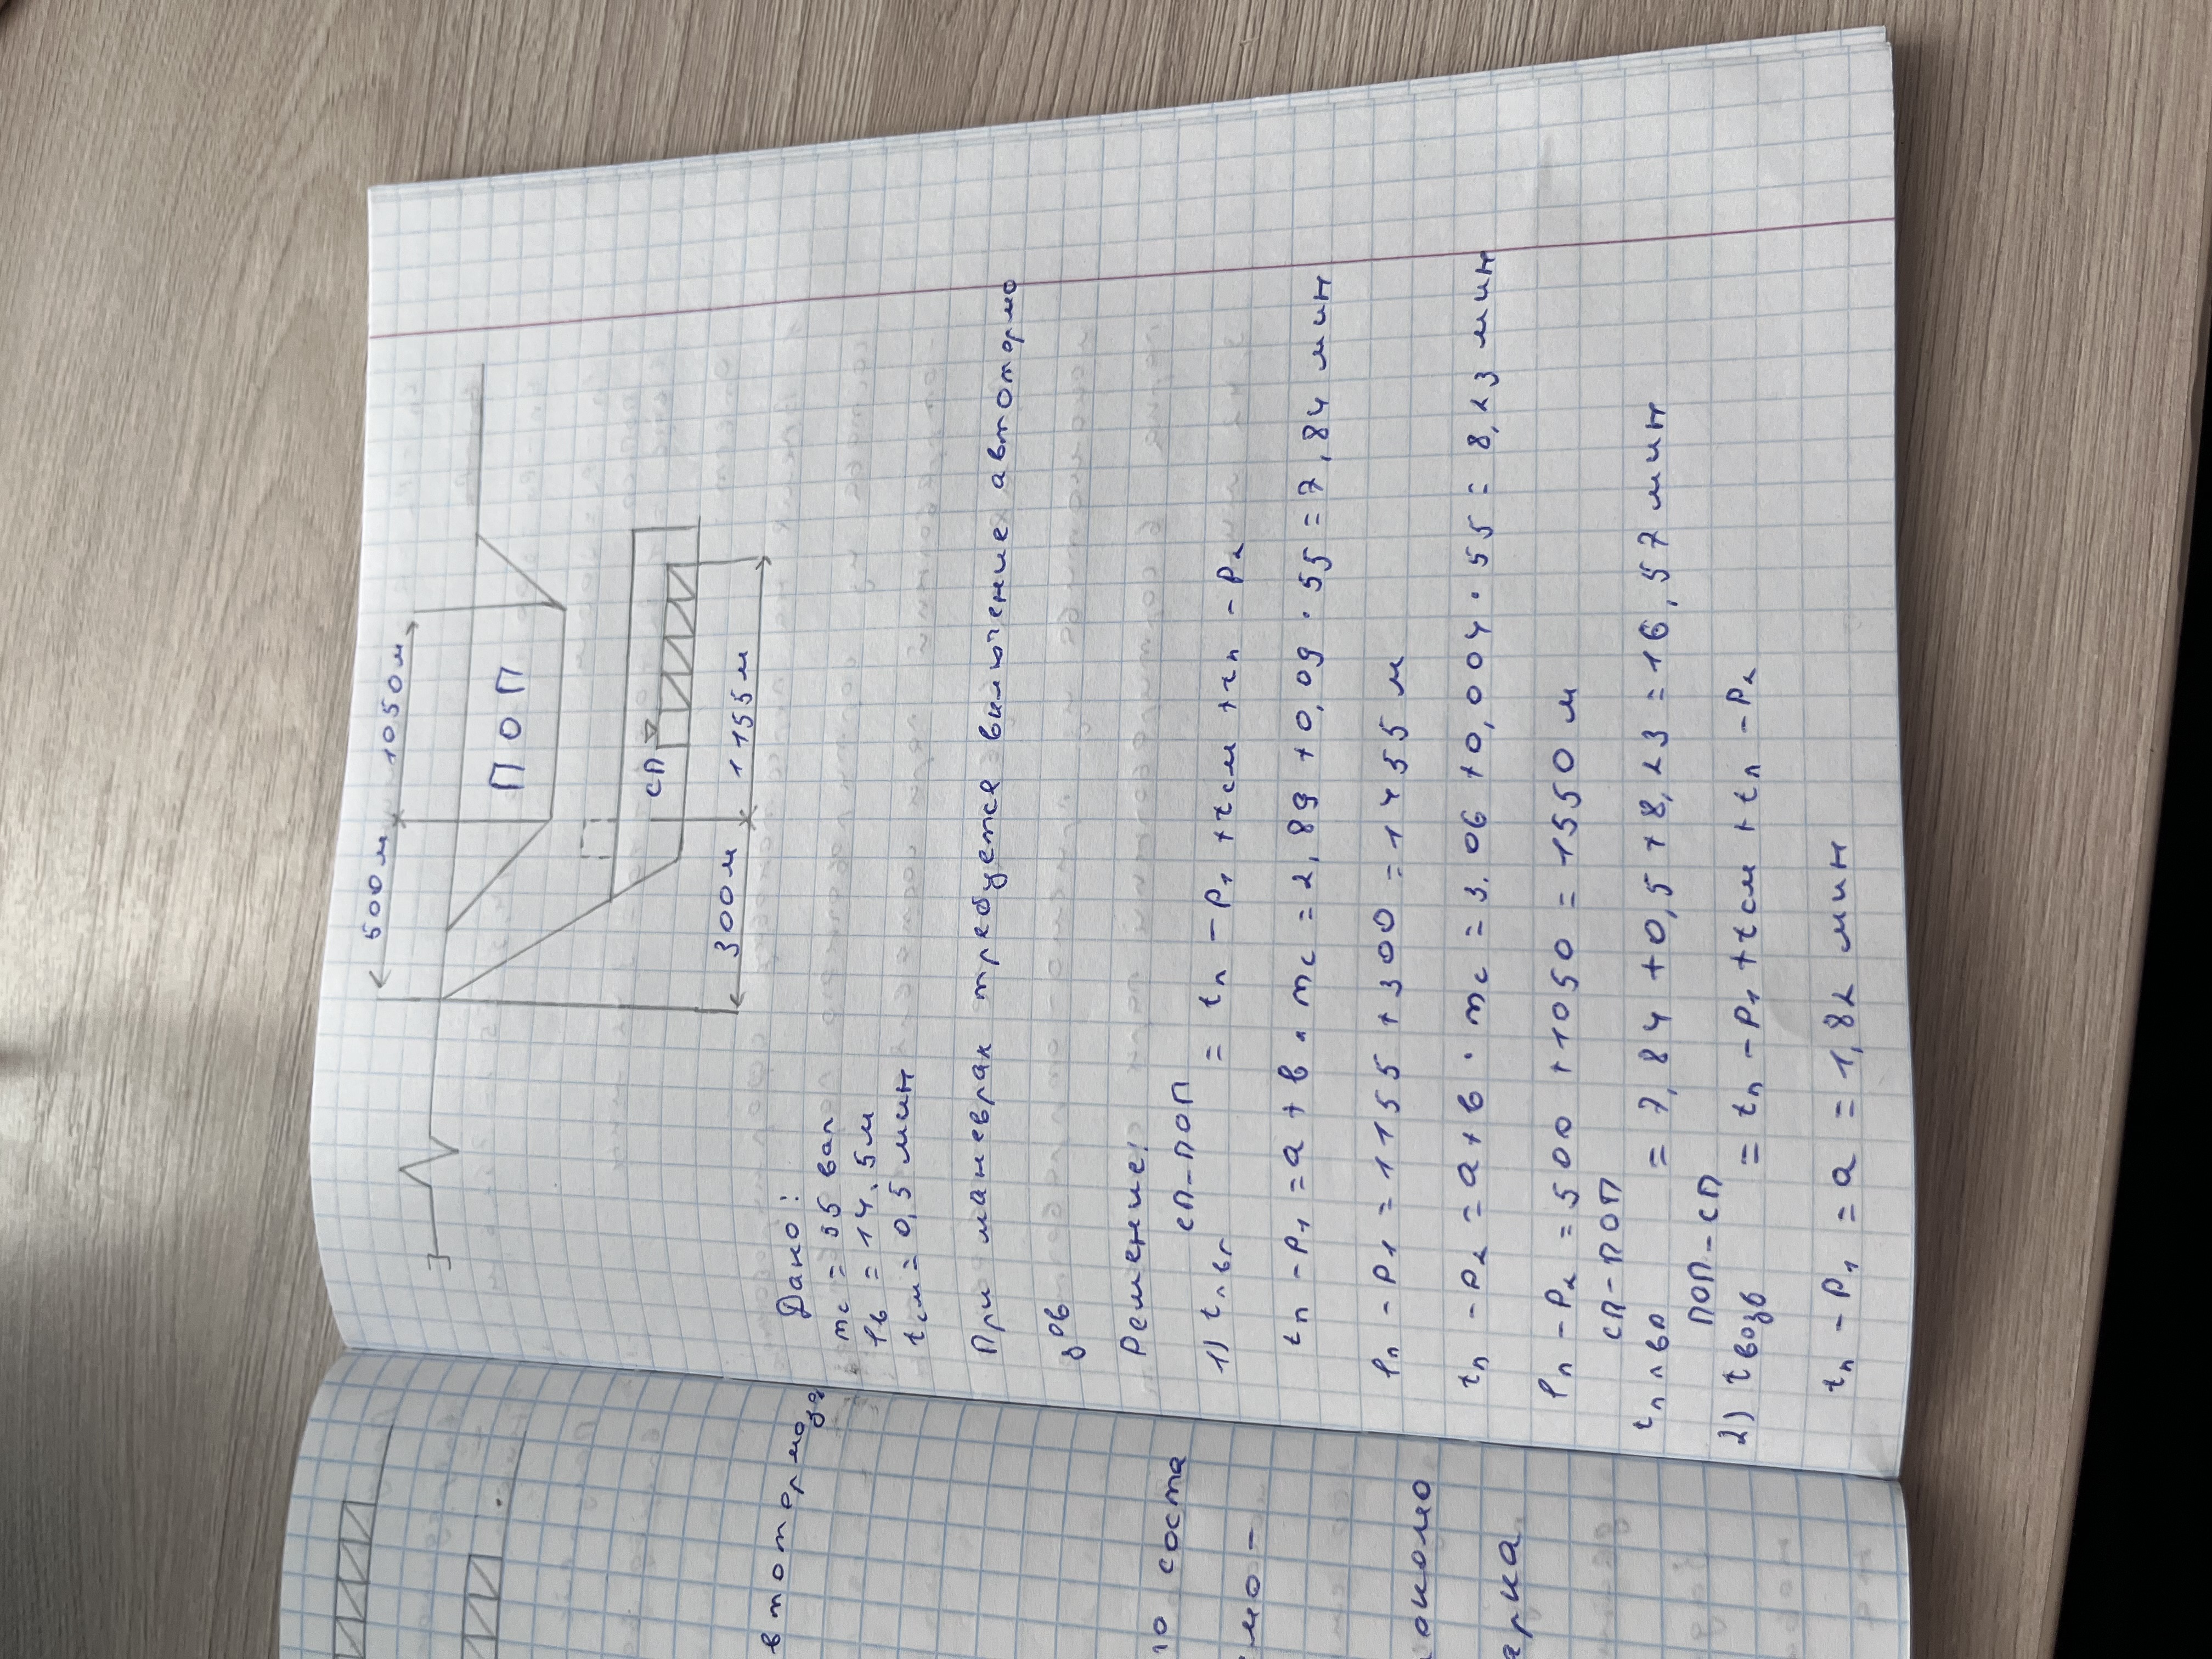 500м 1050м
ПОП
СП
300м 1155м
Дано:
mс = 55 ваг
lв = 14,5м
tсм = 0,5 мин
При маневрах требуется включение автотормо
зов
Решение:
1) tпвг СП-ПОП = tп-р1 + tсм + tп-р2
tп-р1 = а + в · mс = 2,89 + 0,09 · 55 = 7,84 мин
lп-р1 = 1155 + 300 = 1455 м
tп-р2 = а + в · mс = 3.06 + 0,004 · 55 = 8,23 мин
lп-р2 = 500 + 1050 = 1550 м
СП-ПОП
= 7,84 + 0,5 + 8,23 = 16,57 мин
2) tвозв ПОП-СП = tп-р1 + tсм + tп-р2
tп-р1 = а = 1,82 мин
втотормоз
ю соста
мо-
окомо
арка